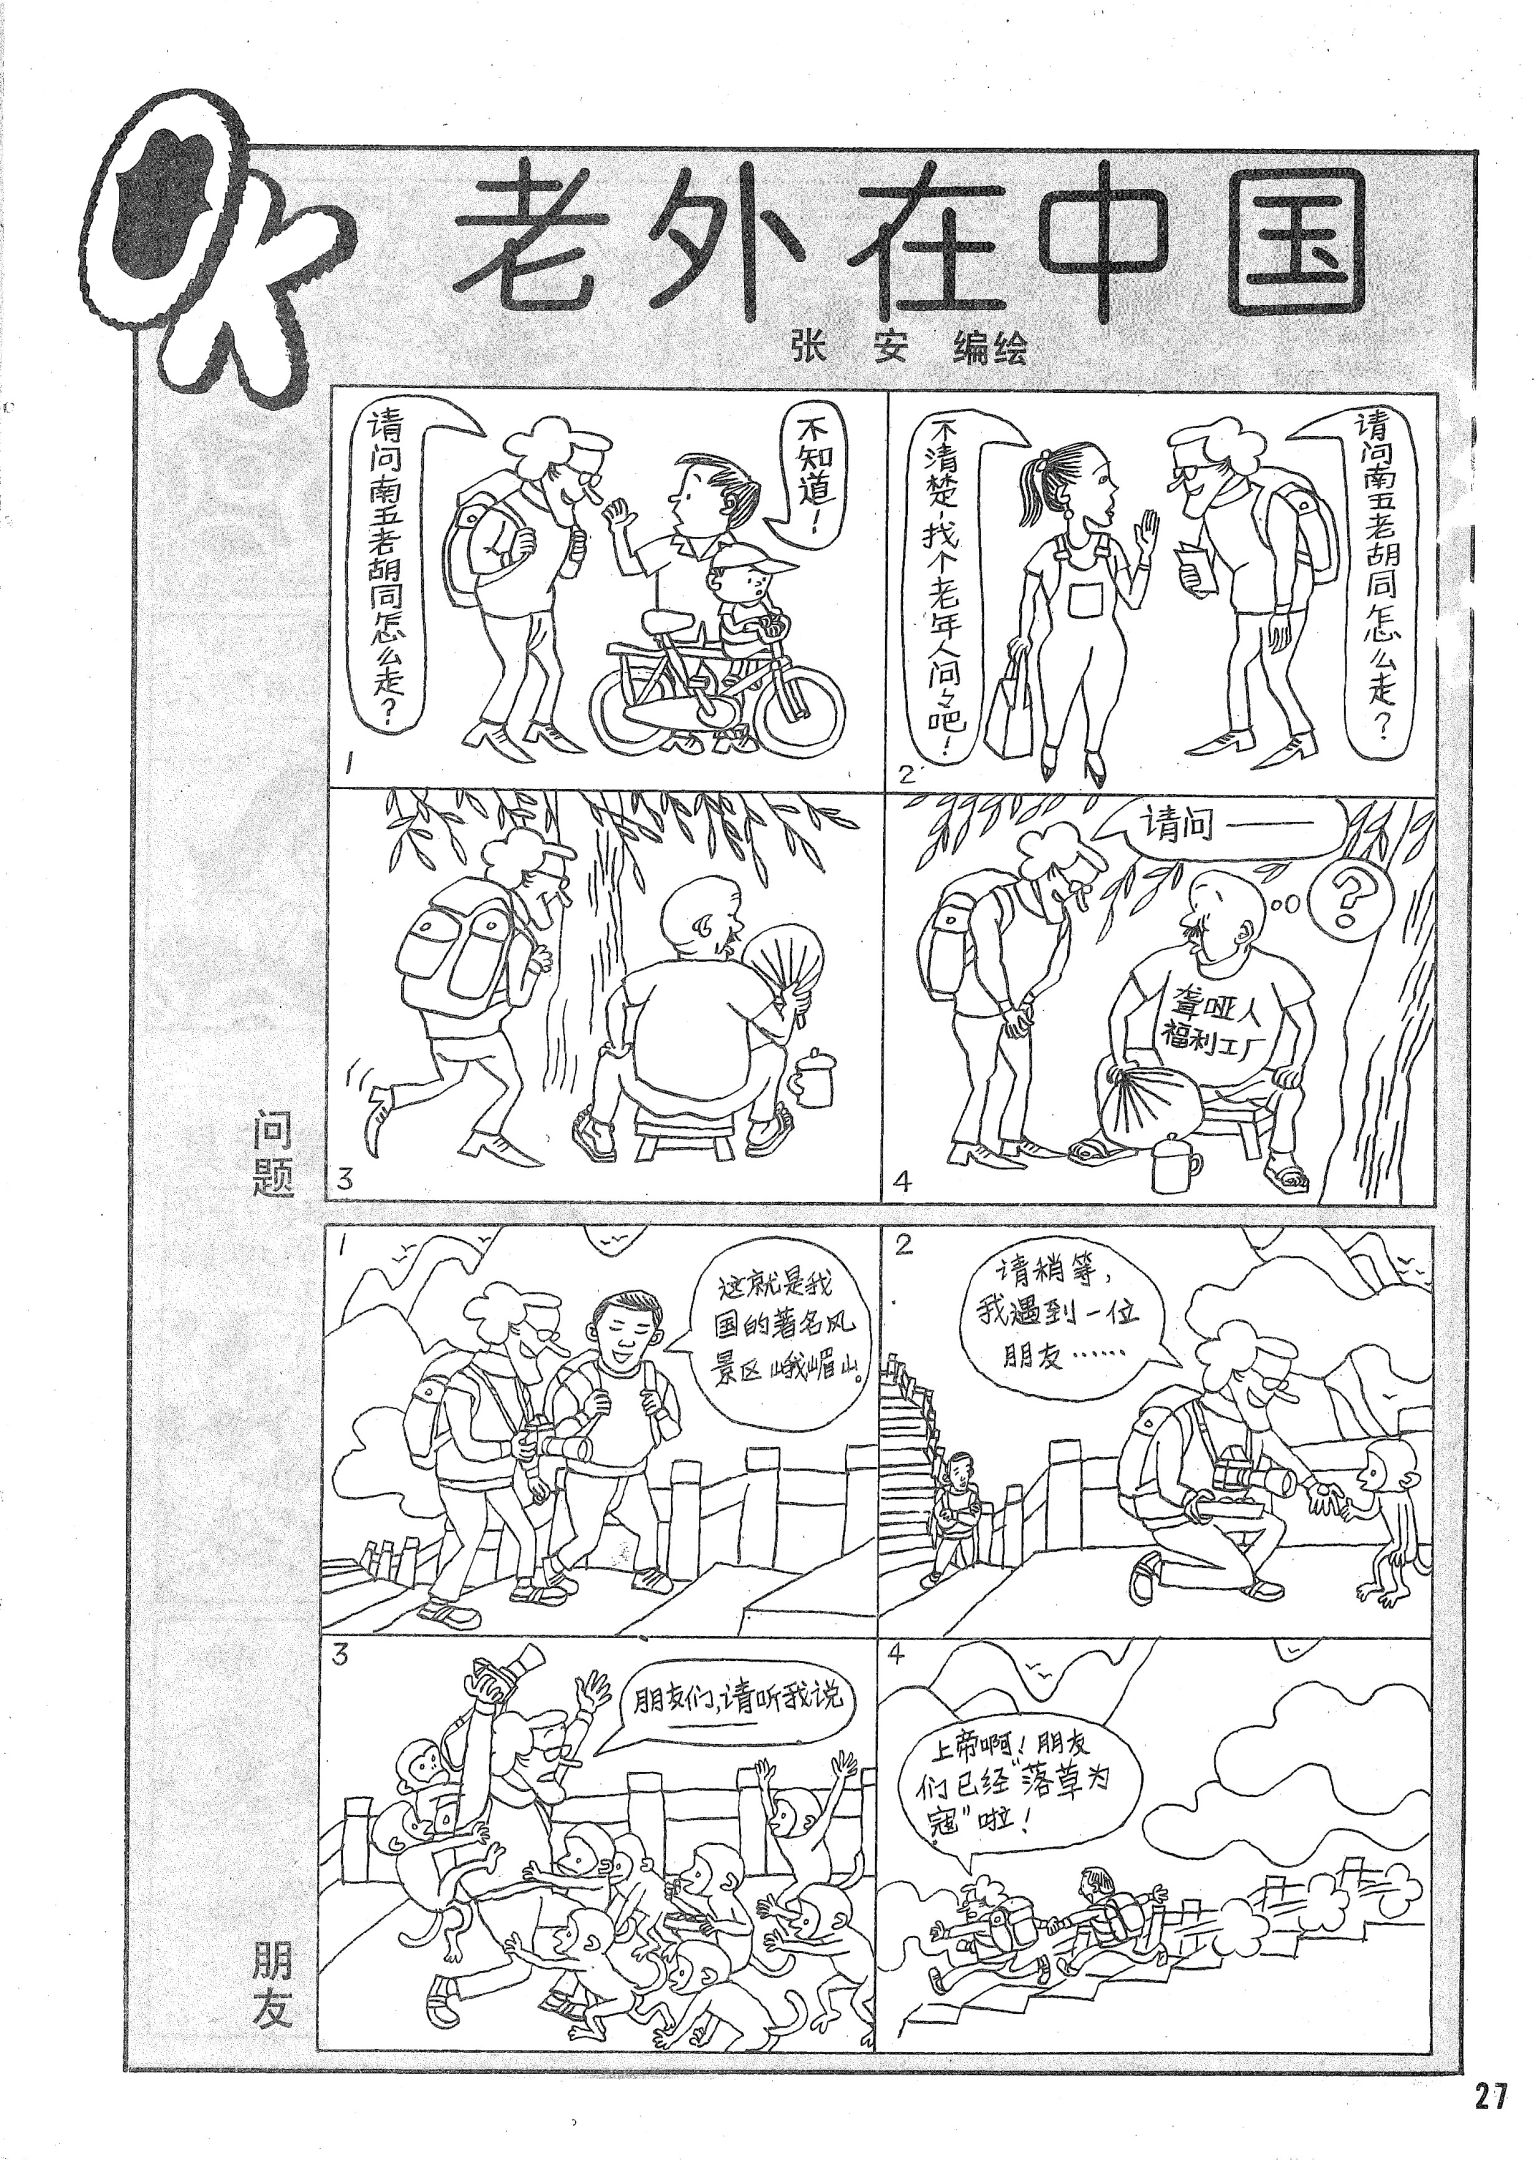 OK
老外在中国
张 安 编绘
请问南五老胡同怎么走？
不知道！
1
不清楚，找个老年人问々吧！
请问南五老胡同怎么走？
2
3
请问——
？
聋哑人
福利工厂
4
问题
1
这就是我
国的著名风
景区峨嵋山。
2
请稍等，
我遇到一位
朋友……
3
朋友们，请听我说
——
4
上帝啊！朋友
们已经“落草为
寇”啦！
朋友
27